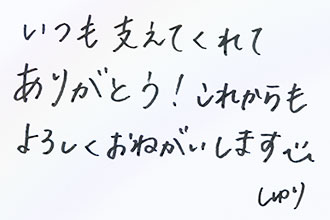 いつも支えてくれて
ありがとう！これからも
よろしくおねがいします
しゅり